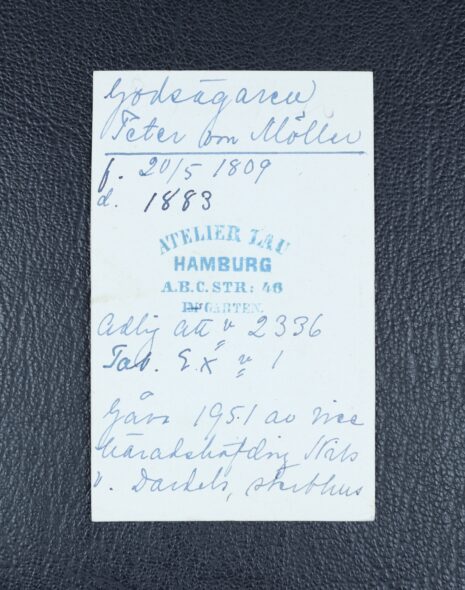 Godsägaren
Peter von Möller
f. 20/5 1809
d. 1883
ATELIER LAU
HAMBURG
A.B.C. STR: 46
IM GARTEN.
Adlig ätt n 2336
Tab. n 1
Gåva 1951 av vice
häradshöfding Nils
v. Dardels, sterbhus